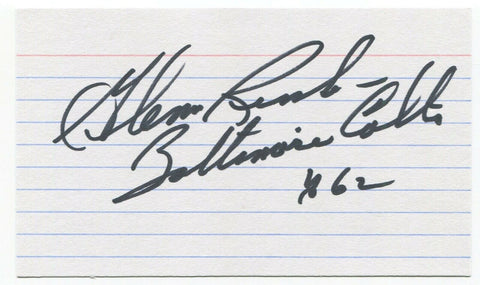 Glenn Ressler -
Baltimore Colts
#62